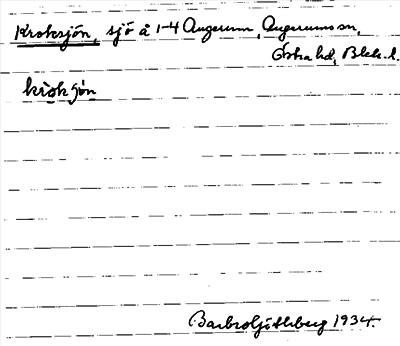 Kroksjön, sjö å 1-4 Angerum, Augerums sn,
Östra hd, Blek. l.
kròk ʃø̀n
Barbro Söhrberg 1934.